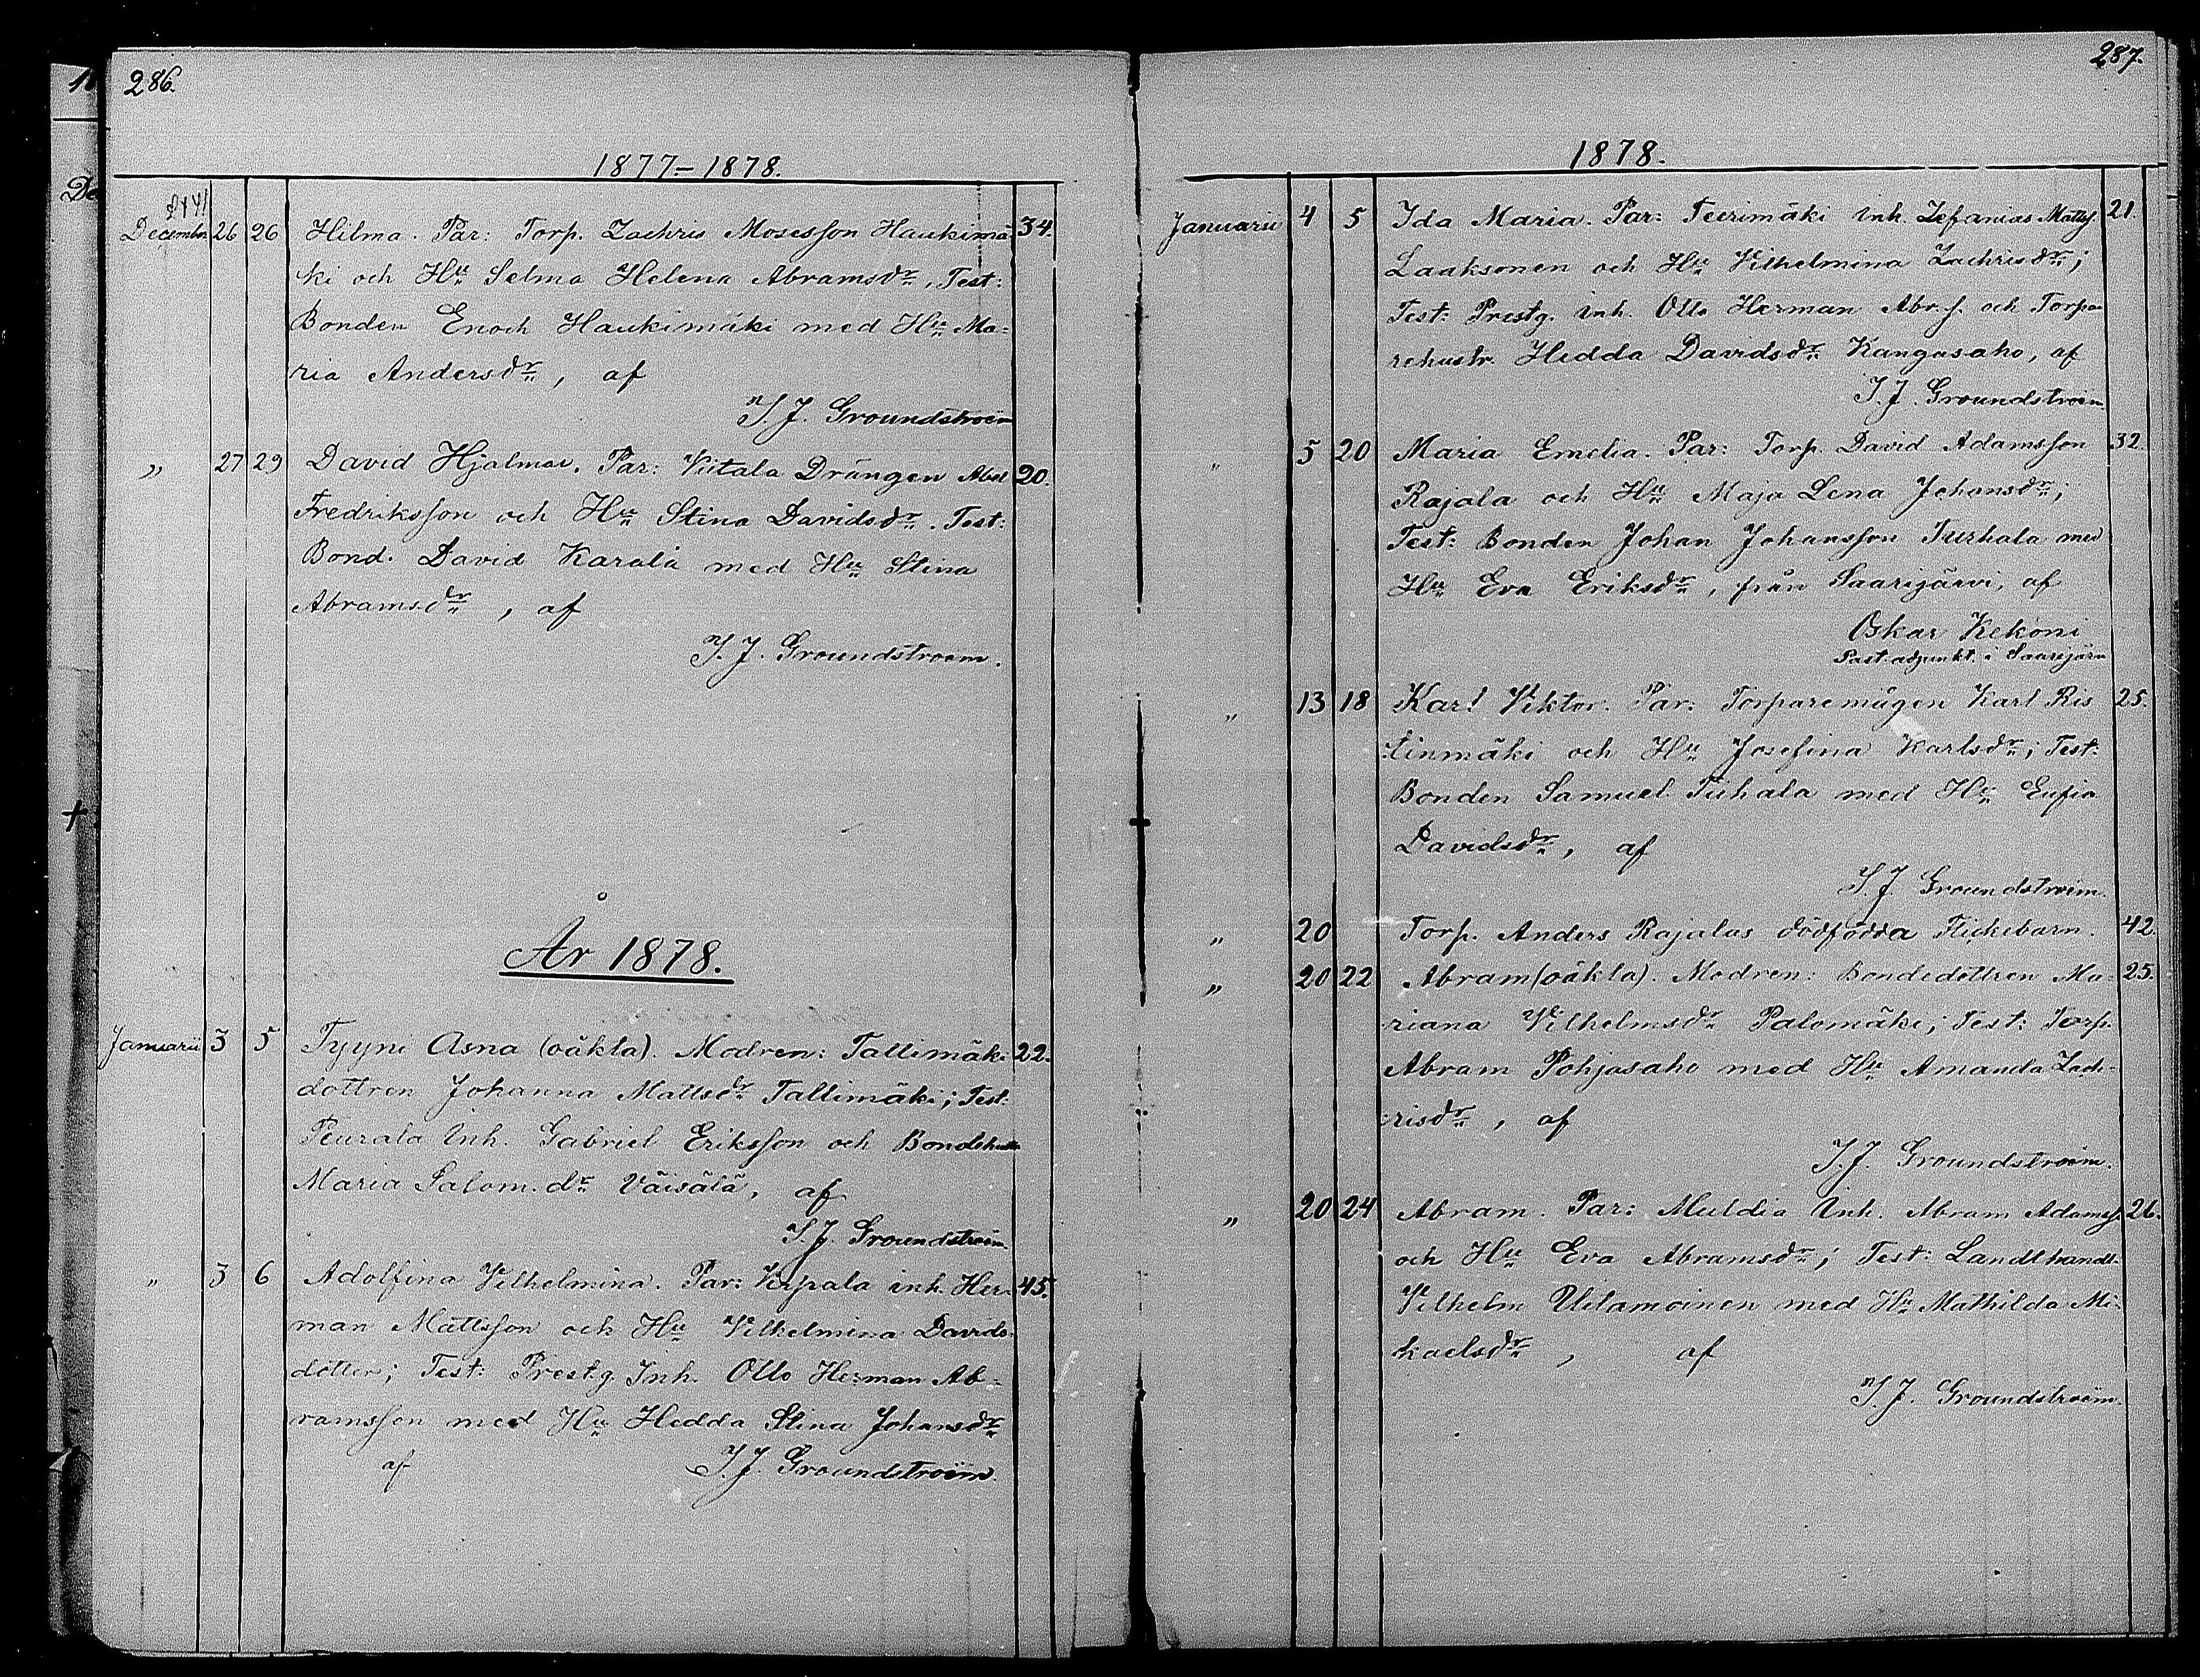 286.
1877–1878.
December 26 26 Hilma. Par: Torp. Zachris Mosesson Haukimä- 34.
ki och Hu Selma Helena Abramsdr. Test:
Bonden Enoch Haukimäki med Hu Ma=
ria Andersdr, af
T.J. Groundstroem
" 27 29 David Hjalmar. Par: Viitala Drängen Abel 20.
Fredriksson och Hu Stina Davidsdr. Test:
Bond. David Karala med Hu Stina
Abramsdr, af
T.J. Groundstroem.
År 1878.
Januarii 3 5 Tyyni Asna (oäkta). Modren: Tallimäki 22.
dottren Johanna Mattsdr Tallimäki; Test:
Peurala Inh. Gabriel Eriksson och Bondehustr
Maria Salom. dr Väisälä, af
T.J. Groundstroem.
" 3 6 Adolfina Vilhelmina. Par: Kapala inh. Her- 45.
man Mattsson och Hu Vilhelmina Davids-
dotter; Test: Prestg. Inh. Otto Herman Ab-
ramsson med Hu Hedda Stina Johansdr
af T.J. Groundstroem.
287.
1878.
Januarii 4 5 Ida Maria. Par: Teerimäki Inh. Zefanias Mattss. 21.
Laaksonen och Hu Vilhelmina Zachrisdr;
Test: Prestg. Inh. Otto Herman Abr.s. och Torpa-
rehustr. Hedda Davidsdr Kangasaho, af
T.J. Groundstroem.
" 5 20 Maria Emelia. Par: Torp. David Adamsson 32.
Rajala och Hu Maja Lena Johansdr;
Test: Bonden Johan Johansson Turhala med
Hu Eva Eriksdr, från Saarijärvi, af
Oskar Kekoni
Past. adjunkt. i Saarijärvi
" 13 18 Karl Viktor. Par: Torparemågen Karl Ris 25.
tinmäki och Hu Josefina Karlsdr; Test:
Bonden Samuel Tiihala med Hu Eufia
Davidsdr, af
T.J. Groundstroem.
" 20 Torp. Anders Rajalas dödfödda Flickebarn. 42.
" 20 22 Abram (oäkta). Modren: Bondedottren Ma- 25.
riana Vilhelmsdr Palomäki; Test: Torp.
Abram Pohjasaho med Hu Amanda Zach-
risdr, af
T.J. Groundstroem.
" 20 24 Abram. Par: Muldia Inh. Abram Adamss. 26.
och Hu Eva Abramsdr; Test: Landthandl.
Vilhelm Uilamoinen med Hu Mathilda Mi-
kaelsdr, af
T.J. Groundstroem.